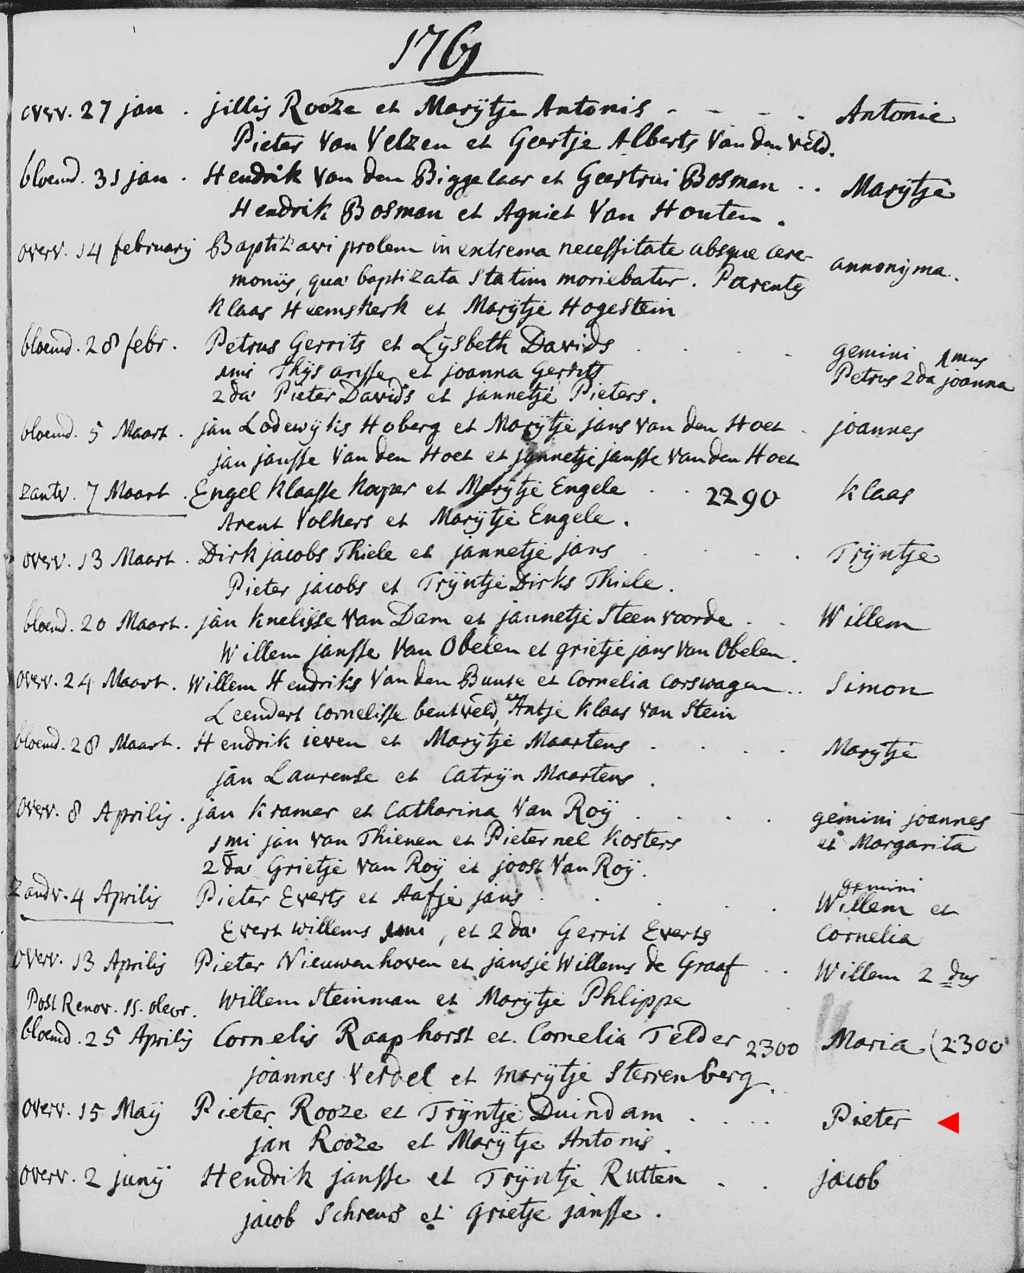 1761
overv. 27 jan . jillis Rooze et Marÿtje Antonis - - - . Antonie
Pieter Van Velzen et Geertje Alberts Van den Veld.
bloemd. 31 jan . Hendrik Van den Biggelaar et Geertrui Bosman . . Marÿtje
Hendrik Bosman et Agniet Van Houten .
overv. 14 february Baptizavi prolem in extrema necessitate absque cere-
moniis, qua baptizata statim moriebatur. Parentes annonijma.
Klaas Heemskerk et Marÿtje Hogestein
bloemd. 28 febr. Petrus Gerrits et Lÿsbeth Davids . . . . gemini 1mus
1mi Thÿs arisse et joanna gerrits Petrus 2da joanna
2da Pieter Davids et jannetje Pieters.
bloemd. 5 Maart . jan Lodewÿks Hoberg et Marÿtje jans van den Hoet . joannes
jan jansse Van den Hoet et jannetje jansse van den Hoet
zantv. 7 Maart . Engel Klaasse et Marÿtje Engele . . 2290 Klaas
Arent Volkers et Marÿtje Engele .
overv. 13 Maart . Dirk jacobs Thiele et jannetje jans . . . Trÿntje
Pieter jacobs et Trÿntje Dirks Thiele .
bloemd. 20 Maart. jan Knelisse Van Dam et jannetje Steenvoorde . . Willem
Willem jansse Van Obelen et grietje jans Van Obelen .
overv. 24 Maart . Willem Hendriks Van den Bunte et Cornelia Corswagen . . Simon
Leendert Cornelisse bentveld, et Antje Klaas Van Stein
bloemd. 28 Maart . Hendrik ieven et Marÿtje Maartens . . . . Marÿtje
jan Laurense et Catrÿn Maartens .
overv. 8 Aprilis . jan Kramer et Catharina Van Roÿ . . . . gemini joannes
1mi jan van Thienen et Pieternel Kosters et Margarita
2da Grietje Van Roÿ et joost Van Roÿ.
zandv. 4 Aprilis Pieter Everts et Aafje jans . . . . gemini
Willem et
Evert Willems 1mi, et 2da Gerrit Everts Cornelia
overv. 13 Aprilis Pieter Nieuwenhoven et jansje Willems de Graaf . . Willem 2 dus
Post Renov. 15. Willem Steinman et Marÿtje Phlippe
bloemd. 25 Aprilis Cornelis Raaphorst et Cornelia Telder 2300 Maria (2300
joannes Verdel et marÿtje Sterrenberg.
overv. 15 Maÿ Pieter Rooze et Trÿntje Duindam . . . . Pieter
jan Rooze et Marÿtje Antonis .
overv. 2 junÿ Hendrik jansse et Trÿntje Rutten . . jacob
jacob Schreus et grietje jansse .